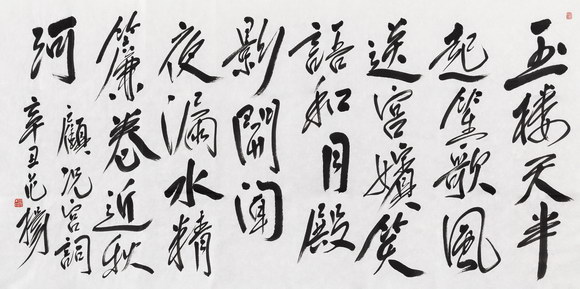 玉楼天半
起笙歌風
送宮嬪笑
語和月殿
影開聞
夜漏水精
簾卷近秋
河
顧況宮詞
辛丑范揚